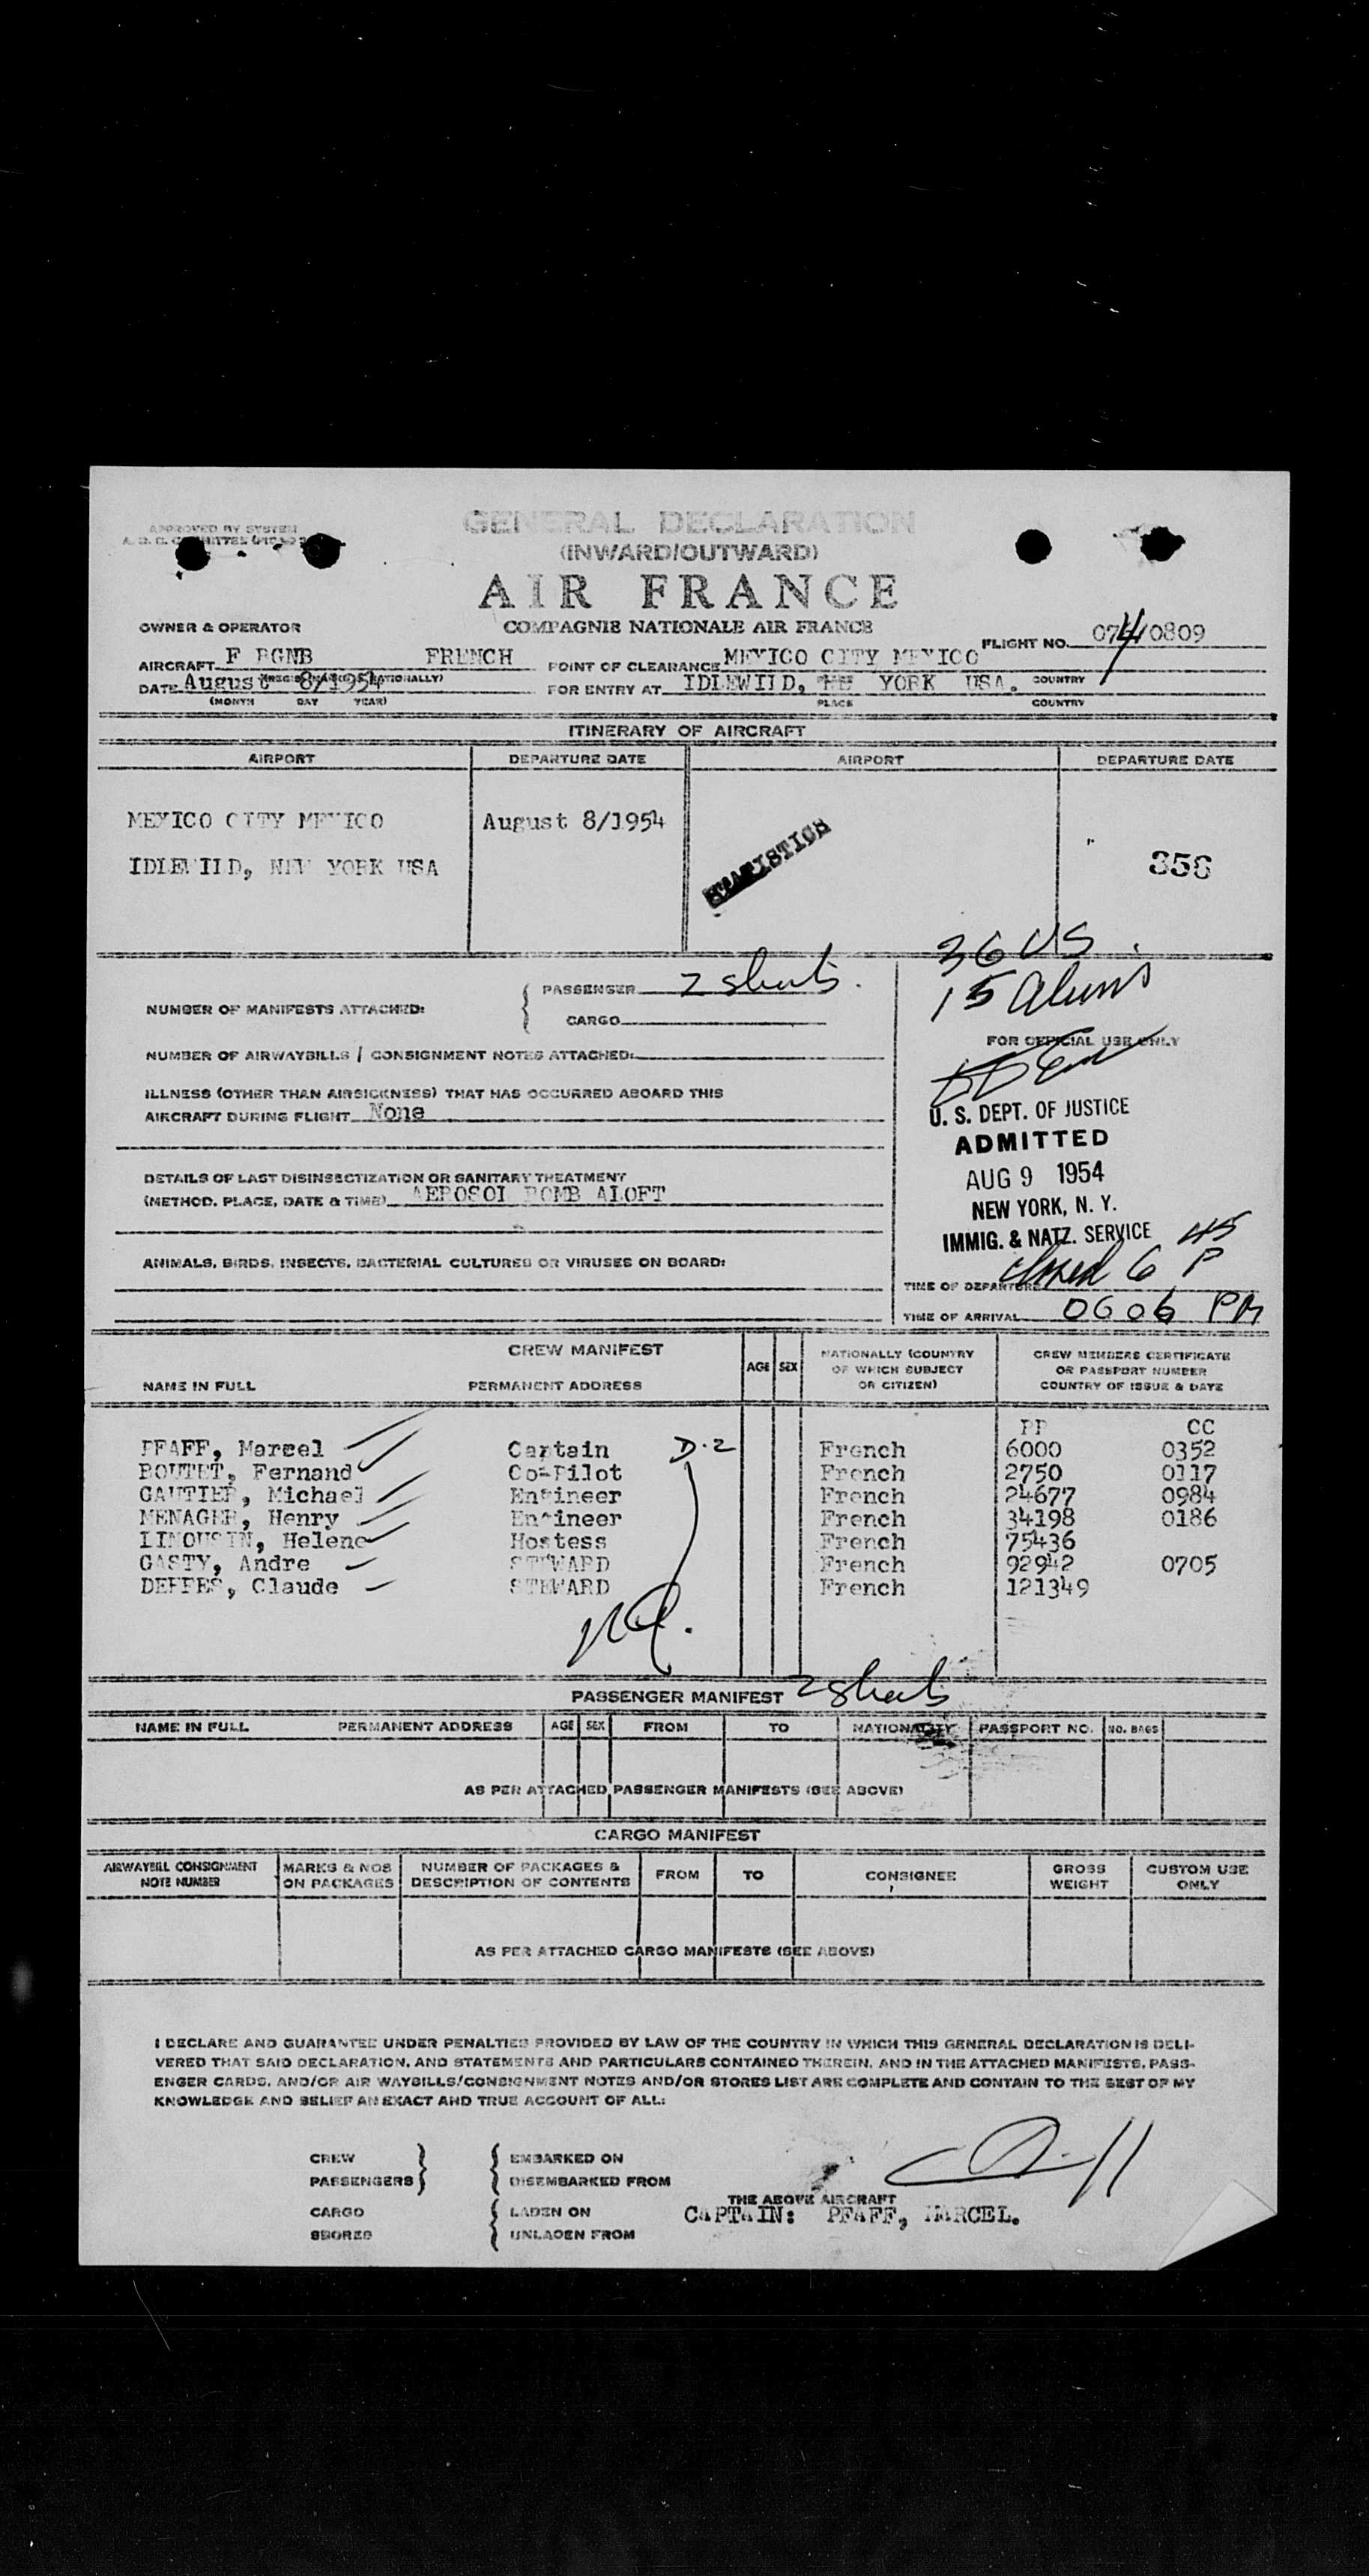 APPROVED BY SYSTEM
GENERAL DECLARATION
(INWARD/OUTWARD)
AIR FRANCE
OWNER & OPERATOR COMPAGNIE NATIONALE AIR FRANCE
FLIGHT NO. 074/0809
AIRCRAFT F BGNB FRENCH POINT OF CLEARANCE MEXICO CITY MEXICO
DATE August 8/1954 FOR ENTRY AT IDLEWILD, NEW YORK USA. COUNTRY
(MONTH DAY YEAR) PLACE COUNTRY
ITINERARY OF AIRCRAFT
AIRPORT DEPARTURE DATE AIRPORT DEPARTURE DATE
MEXICO CITY MEXICO August 8/1954
STATISTICS
IDLEWILD, NEW YORK USA 356
36 US
15 Aliens
NUMBER OF MANIFESTS ATTACHED: { PASSENGER 2 sheets.
CARGO
FOR OFFICIAL USE ONLY
NUMBER OF AIRWAYBILLS / CONSIGNMENT NOTES ATTACHED:
ILLNESS (OTHER THAN AIRSICKNESS) THAT HAS OCCURRED ABOARD THIS
AIRCRAFT DURING FLIGHT None
U. S. DEPT. OF JUSTICE
ADMITTED
AUG 9 1954
NEW YORK, N. Y.
IMMIG. & NATZ. SERVICE
DETAILS OF LAST DISINSECTIZATION OR SANITARY TREATMENT
(METHOD, PLACE, DATE & TIME) AEROSOL BOMB ALOFT
ANIMALS, BIRDS, INSECTS, BACTERIAL CULTURES OR VIRUSES ON BOARD:
closed 6 45 P
TIME OF DEPARTURE
TIME OF ARRIVAL 0606 PM
CREW MANIFEST
NAME IN FULL PERMANENT ADDRESS AGE SEX NATIONALLY (COUNTRY OF WHICH SUBJECT OR CITIZEN) CREW MEMBERS CERTIFICATE OR PASSPORT NUMBER COUNTRY OF ISSUE & DATE
PP CC
PFAFF, Marcel Captain D-2 French 6000 0352
BOUTET, Fernand Co-Pilot French 2750 0117
GAUTIER, Michael Engineer French 24677 0984
MENAGER, Henry Engineer French 34198 0186
LIMOUSIN, Helene Hostess French 75436
GASTY, Andre STEWARD French 92942 0705
DEFFES, Claude STEWARD French 121349
PASSENGER MANIFEST 2 sheets
NAME IN FULL PERMANENT ADDRESS AGE SEX FROM TO NATIONALITY PASSPORT NO. NO. BAGS
AS PER ATTACHED PASSENGER MANIFESTS (SEE ABOVE)
CARGO MANIFEST
AIRWAYBILL CONSIGNMENT NOTE NUMBER MARKS & NOS ON PACKAGES NUMBER OF PACKAGES & DESCRIPTION OF CONTENTS FROM TO CONSIGNEE GROSS WEIGHT CUSTOM USE ONLY
AS PER ATTACHED CARGO MANIFESTS (SEE ABOVE)
I DECLARE AND GUARANTEE UNDER PENALTIES PROVIDED BY LAW OF THE COUNTRY IN WHICH THIS GENERAL DECLARATION IS DELI-
VERED THAT SAID DECLARATION, AND STATEMENTS AND PARTICULARS CONTAINED THEREIN, AND IN THE ATTACHED MANIFESTS, PASS-
ENGER CARDS, AND/OR AIR WAYBILLS/CONSIGNMENT NOTES AND/OR STORES LIST ARE COMPLETE AND CONTAIN TO THE BEST OF MY
KNOWLEDGE AND BELIEF AN EXACT AND TRUE ACCOUNT OF ALL:
CREW EMBARKED ON
PASSENGERS DISEMBARKED FROM
THE ABOVE AIRCRAFT
CARGO LADEN ON CAPTAIN: PFAFF, MARCEL.
SHORES UNLADEN FROM